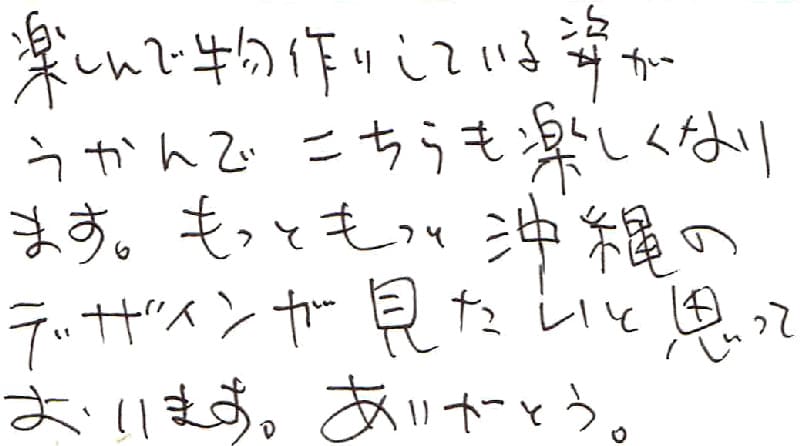 楽しんで物作りしている姿が
うかんでこちらも楽しくなり
ます。もっともっと沖縄の
デザインが見たいと思って
おります。ありがとう。